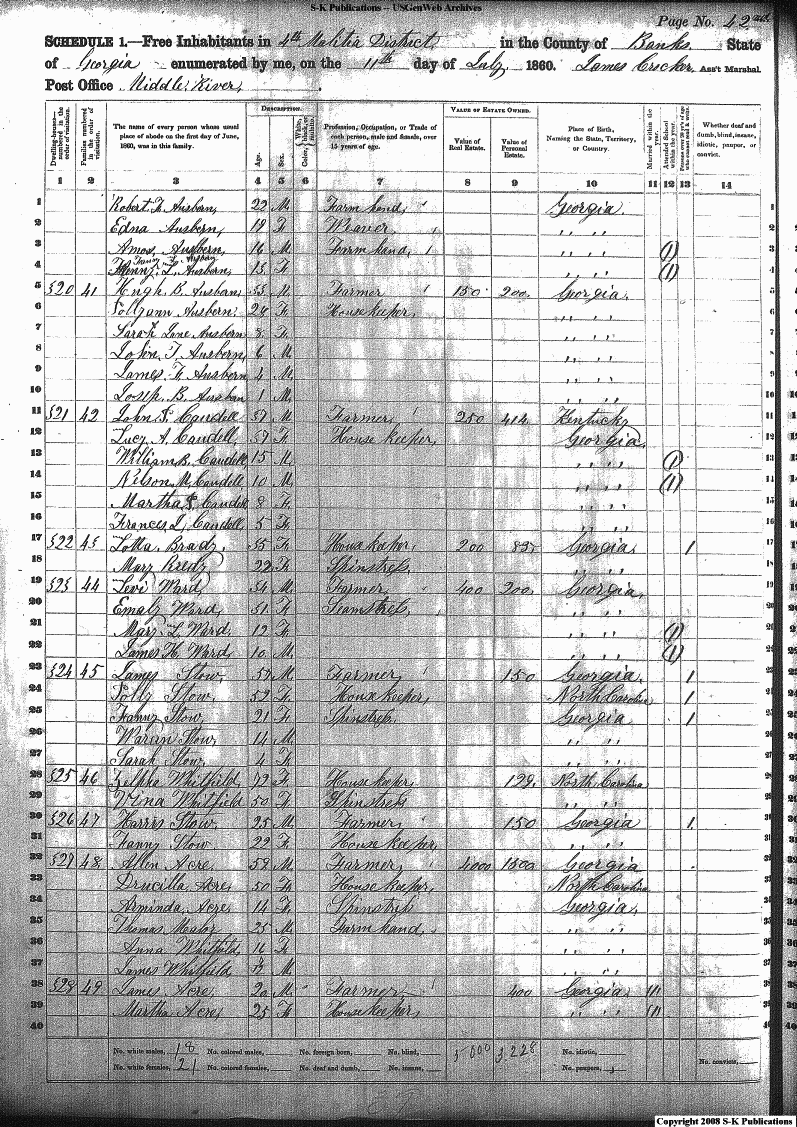 S-K Publications -- USGenWeb Archives
Page No. 42
SCHEDULE 1.—Free Inhabitants in 4th Malitia District in the County of Banks State
of Georgia enumerated by me, on the 11th day of July 1860. James Crocker Ass't Marshal.
Post Office Middle River
Dwelling-houses— numbered in the order of visitation.
Families numbered in the order of visitation.
The name of every person whose usual place of abode on the first day of June, 1860, was in this family.
DESCRIPTION.
Age.
Sex.
Color, White, black, or mulatto.
Profession, Occupation, or Trade of each person, male and female, over 15 years of age.
VALUE OF ESTATE OWNED.
Value of Real Estate.
Value of Personal Estate.
Place of Birth, Naming the State, Territory, or Country.
Married within the year.
Attended School within the year.
Persons over 20 y'rs of age who cannot read & write.
Whether deaf and dumb, blind, insane, idiotic, pauper, or convict.
1 2 3 4 5 6 7 8 9 10 11 12 13 14
1 Robert F. Ausbern, 22 M. Farm hand, Georgia. 1
2 Edna Ausbern, 19 F. Weaver, " " 2
3 Amos, Ausbern, 16 M. Farm hand, " " (1) 3
4 L. Ausbern, 13 F. " " (1) 4
5 520 41 Hugh B. Ausbern, 35 M. Farmer 150 200 Georgia. 5
6 Pollyann Ausbern, 28 F. House keeper, " " 6
7 Sarah Jane Ausbern 8 F. " " 7
8 John T. Ausbern, 6 M. " " 8
9 James F. Ausbern 4 M. " " 9
10 Joseph B. Ausban 1 M. " " 10
11 521 42 John S. Caudell 57 M. Farmer, 250 414 Kentucky 11
12 Lucy A. Caudell, 57 F. House keeper, Georgia, 12
13 William B. Caudell, 15 M. " " (1) 13
14 Nelson M. Caudell 10 M. " " (1) 14
15 Martha Caudell 8 F. " " 15
16 Frances L. Caudell, 5 F. " " 16
17 522 43 Brady, 55 F. House keeper, 200 Georgia. 1 17
18 Mary 22 F. Spinstress, " " 18
19 523 44 Levi Ward, 54 M. Farmer, 400 200 Georgia, 19
20 Emaly Ward, 51 F. Seamstress, " " 20
21 Mary L. Ward, 12 F. " " (1) 21
22 James H. Ward, 10 M. " " (1) 22
23 524 45 James Stow, 59 M. Farmer, 150 Georgia. 1 23
24 Polly Stow, 52 F. House keeper, North Carolina 1 24
25 Fanny Stow, 21 F. Spinstress, Georgia 1 25
26 Waran Stow, 14 M. " " 26
27 Sarah Stow, 4 F. " " 27
28 525 46 Zelpha Whitfield, 72 F. House keeper, 129. North Carolina 28
29 Vina Whitfield 50 F. Spinstress " " 29
30 526 47 Harris Stow, 25 M. Farmer, 150 Georgia 1. 30
31 Fanny Stow, 22 F. House keeper, " " 31
32 527 48 Allen Acre, 58 M. Farmer, 4000 1500 Georgia 32
33 Drucilla Acre, 50 F. House keeper, North Carolina 33
34 Arminda Acre, 14 F. Spinstress Georgia, 34
35 Thomas 25 M. Farm hand, " " 35
36 Anna Whitfild, 16 F. " " 36
37 James Whitfield M. " " 37
38 528 49 James Acre, 20 M. Farmer, 400 Georgia, 38
39 Martha Acre, 25 F. House keeper, " " 39
40 40
No. white males, 18 No. colored males, No. foreign born, No. blind, 5000 3.228 No. idiotic,
No. white females, 21 No. colored females, No. deaf and dumb, No. insane, No. paupers, No. convicts,
Copyright 2008 S-K Publications